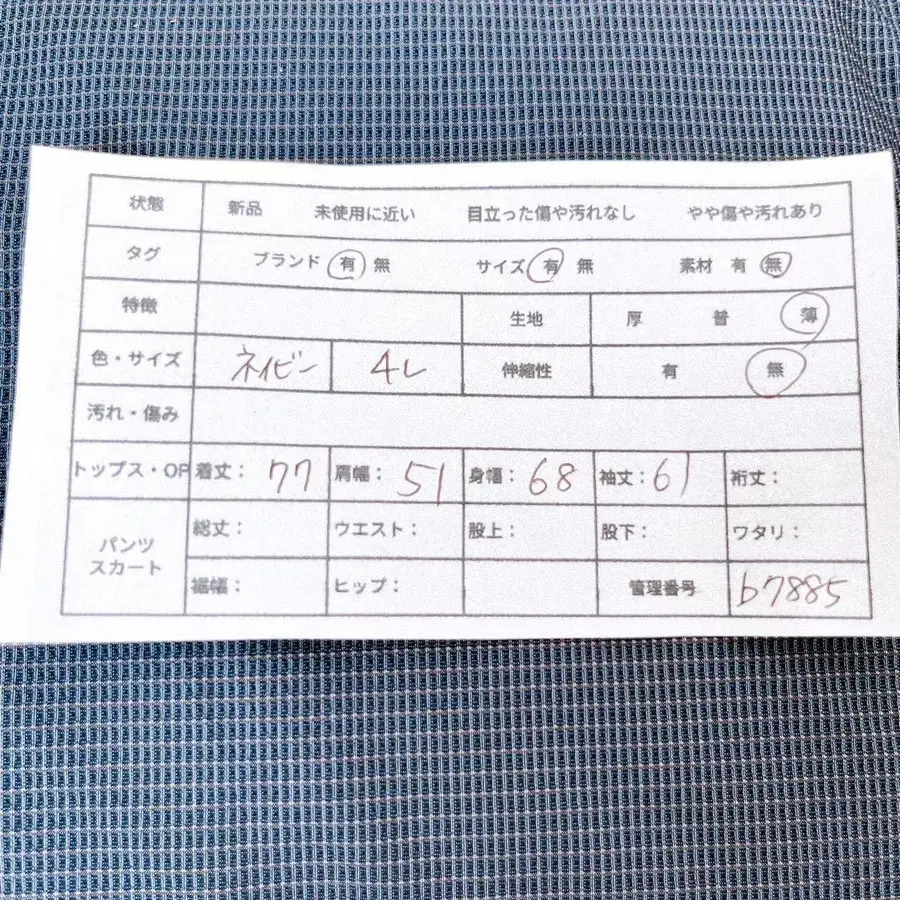 状態 新品 未使用に近い 目立った傷や汚れなし やや傷や汚れあり
タグ ブランド 有 無 サイズ 有 無 素材 有 無
特徴 生地 厚 普 薄
色・サイズ ネイビー 4L 伸縮性 有 無
汚れ・傷み
トップス・OP 着丈： 77 肩幅： 51 身幅： 68 袖丈： 61 裄丈：
パンツ スカート 総丈： ウエスト： 股上： 股下： ワタリ：
裾幅： ヒップ： 管理番号 b7885